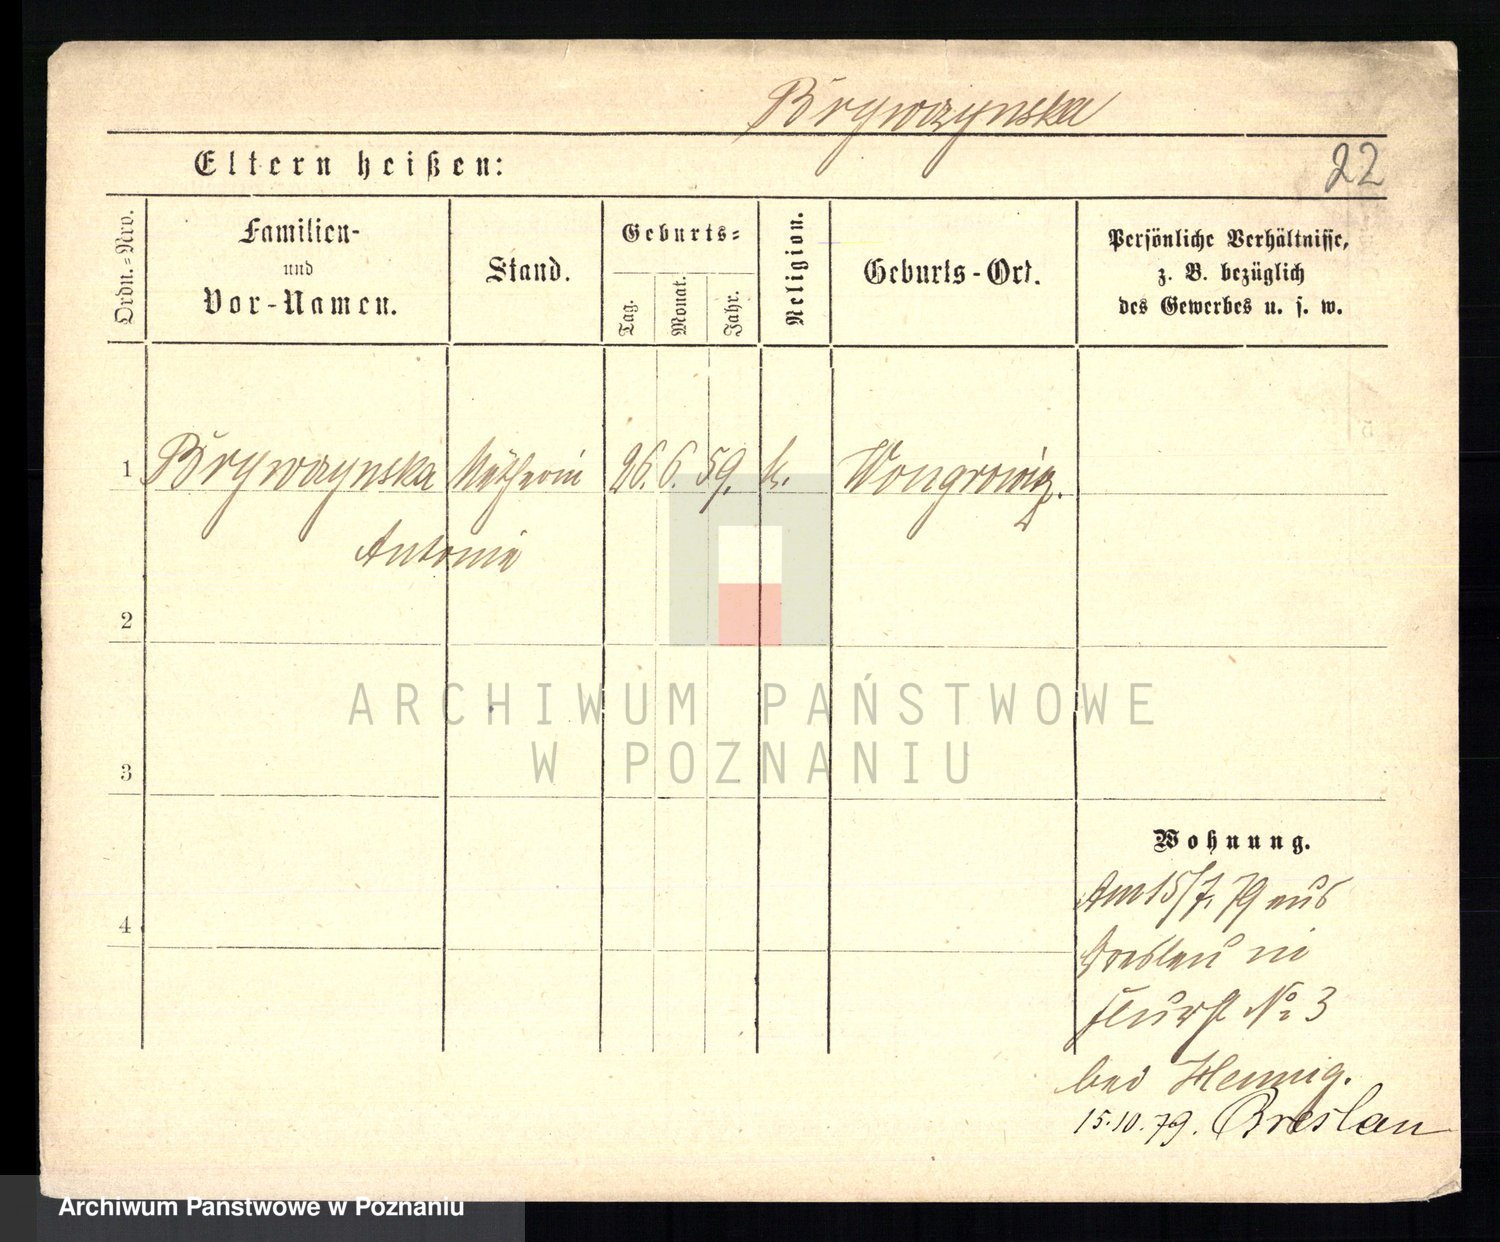 Brzywczynska
Eltern heißen:
22
Ordn.=Nro.
Familien-
und
Vor-Namen.
Stand.
Geburts=
Tag.
Monat.
Jahr.
Religion.
Geburts-Ort.
Persönliche Verhältnisse,
z. B. bezüglich
des Gewerbes u. s. w.
1 26. 6. 59. k. Wongrowitz.
Antonie
2
ARCHIWUM PAŃSTWOWE
W POZNANIU
3
Wohnung.
4
Am 15/7. 79 aus
Breslau in
No 3
bei Hennig.
15.10.79. Breslau
Archiwum Państwowe w Poznaniu